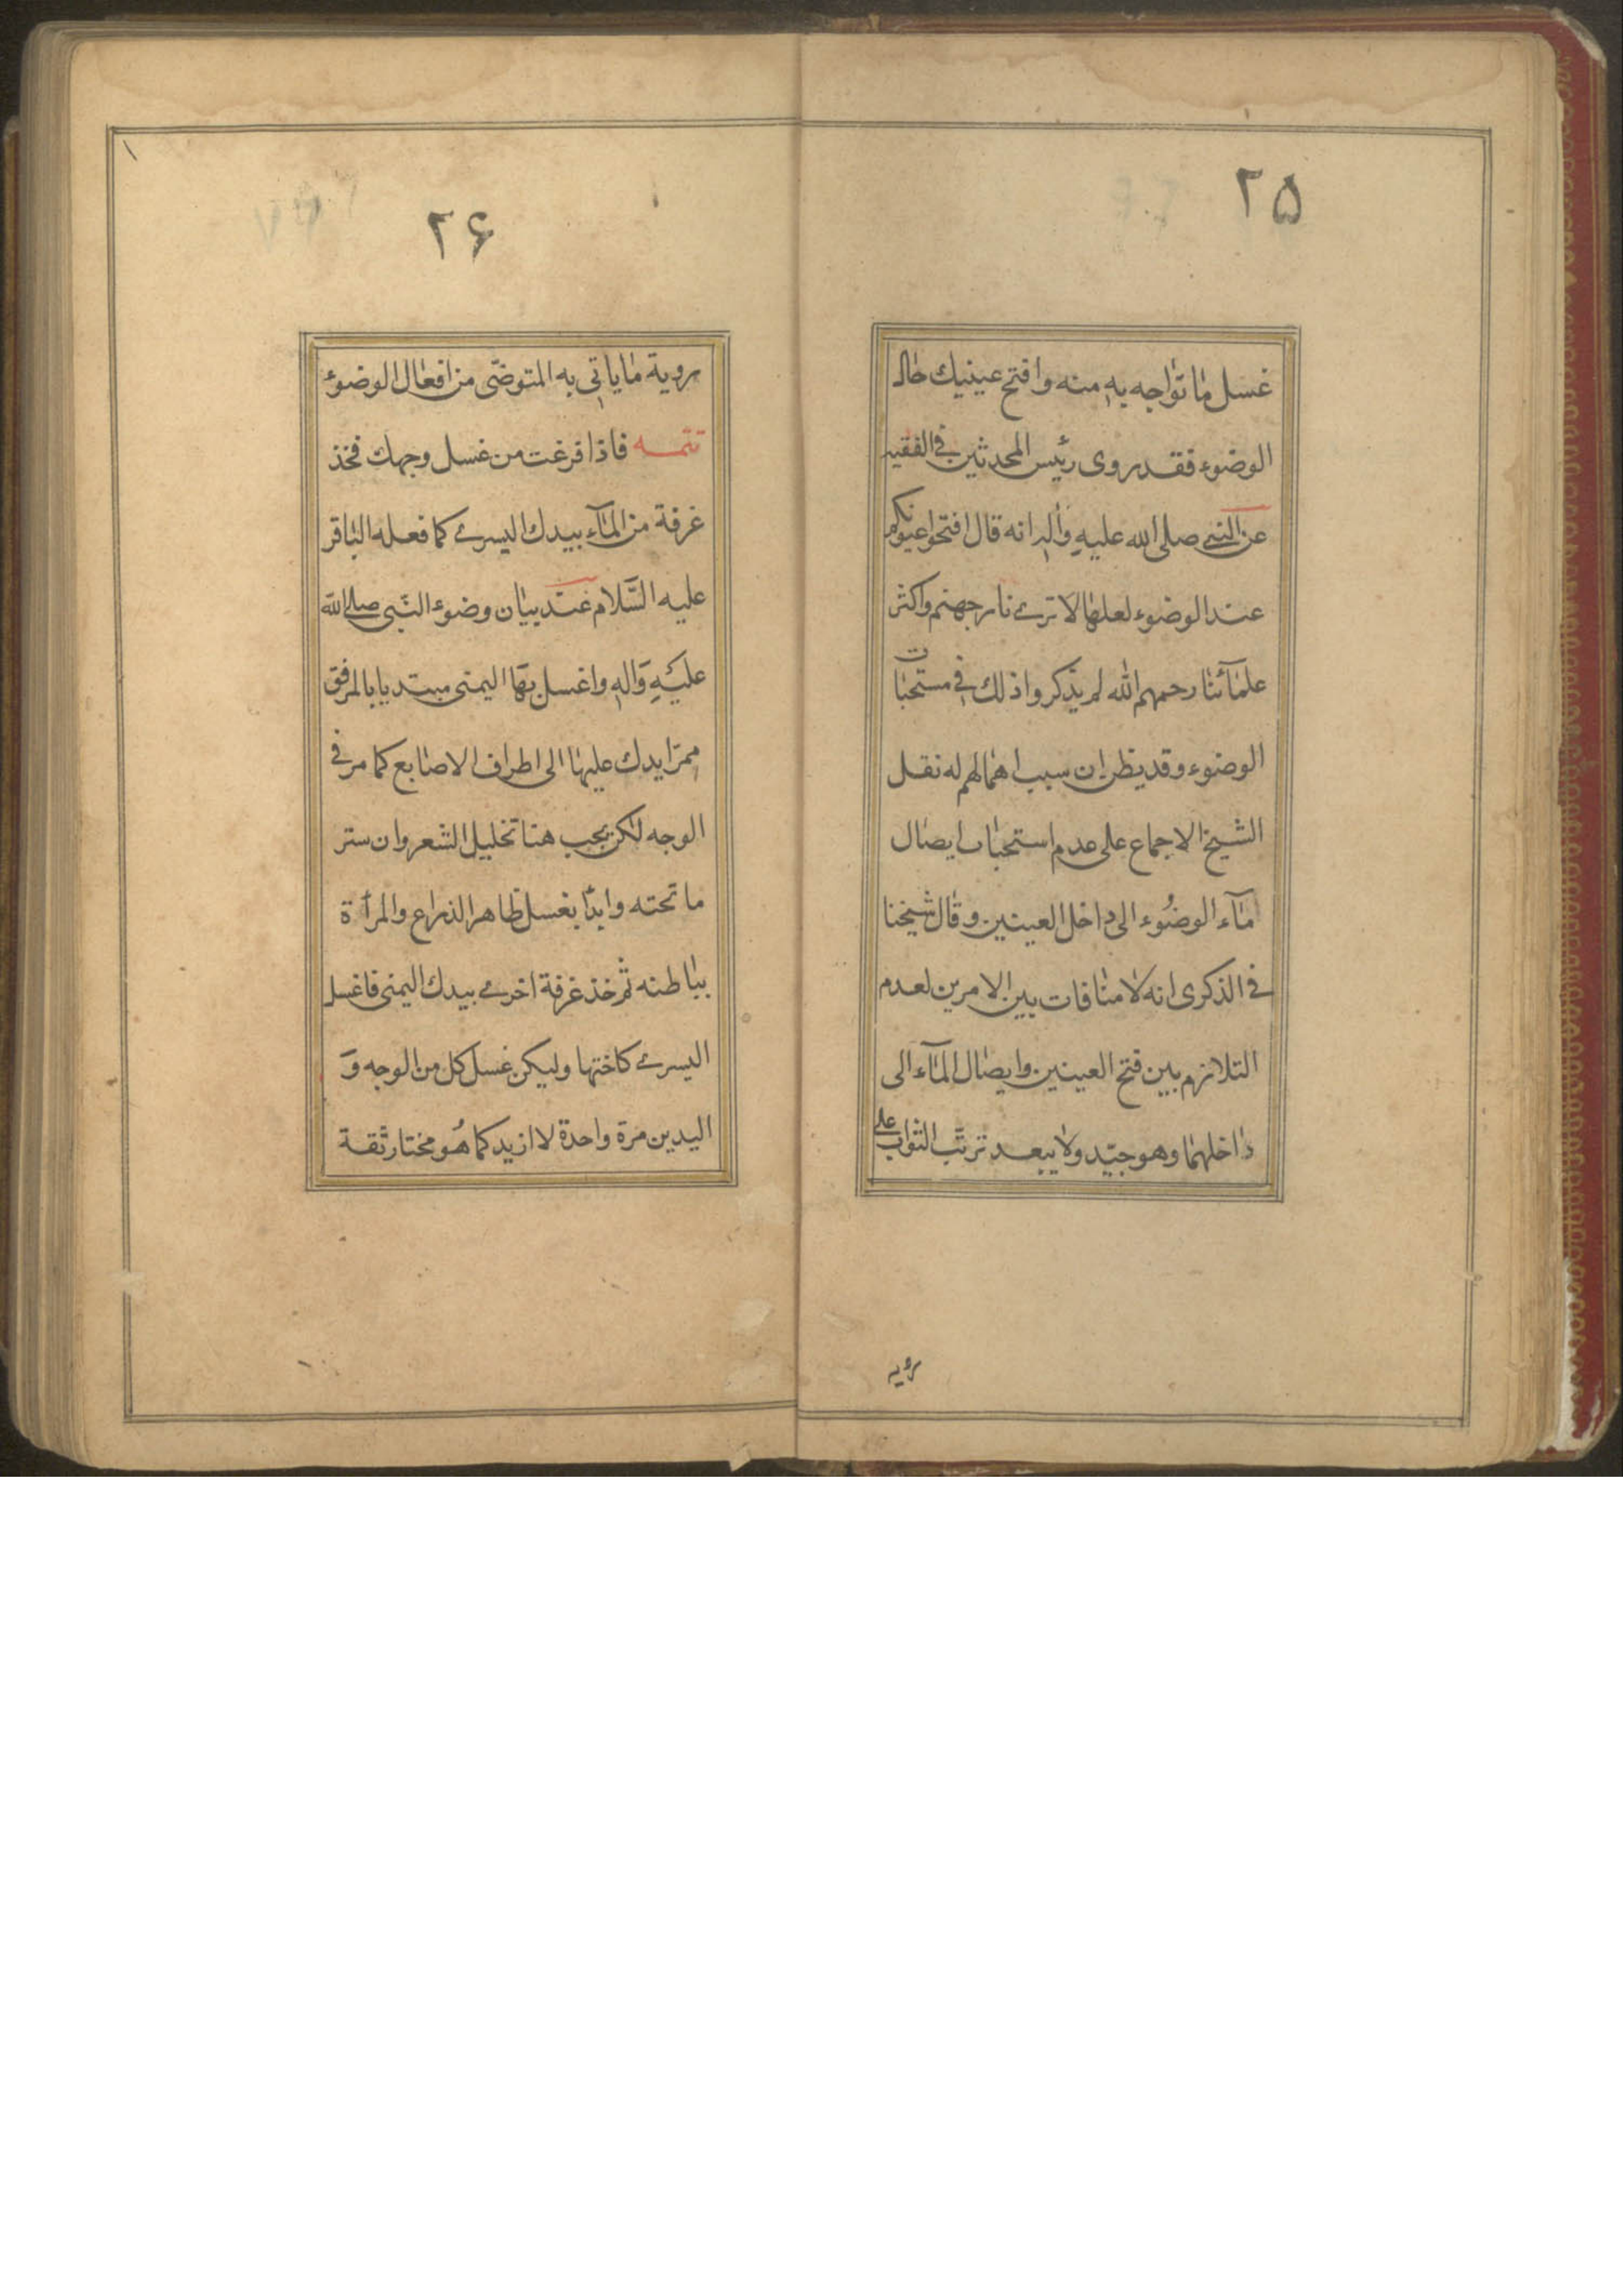 ۲۵
غسل ما تواجه به منه وافتح عينيك حال
الوضوء فقد روى رئيس المحدثين في الفقيه
عن النبي صلى الله عليه وآله انه قال افتحوا عيونكم
عند الوضوء لعلها لا ترى نار جهنم واكثر
علمآئنا رحمهم الله لم يذكروا ذلك في مستحبات
الوضوء وقد يظن ان سبب اهمالهم له نقل
الشيخ الاجماع على عدم استحباب ايصال
مآء الوضُوء الى داخل العينين وقال شيخنا
في الذكرى انه لا منافات بين الامرين لعدم
التلازم بين فتح العينين وايصال المآء الى
داخلهما وهو جيّد ولا يبعد ترتّب الثواب على
رؤيه
۲۶
روية ما ياتي به المتوضّى من افعال الوضوء
تتمه فاذا فرغت من غسل وجهك فخذ
غرفة من المآء بيدك اليسرى كما فعله الباقر
عليه السَّلام عند بيان وضوء النّبى صلى الله
عليَهِ وَالهِ واغسل بهَا اليمنى مبتديا بالمرفق
ممرّا يدك عليها الى اطراف الاصابع كما مر في
الوجه لكن يجب هنا تخليل الشعر وان ستر
ما تحته وابدٔا بغسل ظاهر الذراع والمرأة
بباطنه ثم خذ غرفة اخرى بيدك اليمنى فاغسل
اليسرى كاختها وليكن غسل كل من الوجه وَ
اليدين مرة واحدة لا ازيد كما هُو مختار ثقة